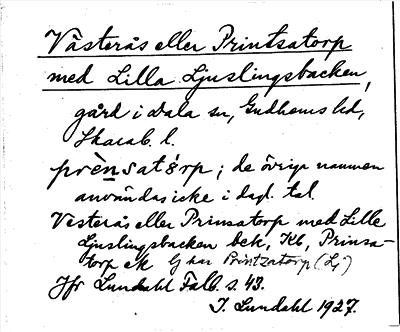 Västerås eller Printsatorp
med Lilla Ljuslingsbacken,
gård i Dala sn, Gudhems hd,
Skarab. l.
prènsatòrp; de övriga namnen
användas icke i dagl. tal.
Vesterås eller Prinsatorp med Lille
Ljuslingsbacken bek, Kb, Prinsa-
torp ek Lj har Printzatorp (Lj)
Jfr Lundahl Falb. s. 43.
I. Lundahl 1927.